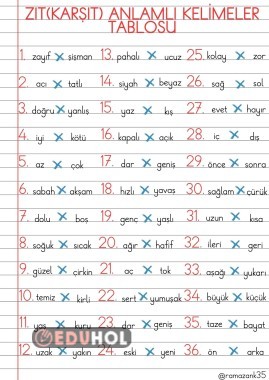 ZIT(KARŞIT) ANLAMLI KELİMELER
TABLOSU
1. zayıf X şişman 13. pahalı X ucuz 25. kolay X zor
2. acı X tatlı 14. siyah X beyaz 26. sağ X sol
3. doğru X yanlış 15. yaz X kış 27. evet X hayır
4. iyi X kötü 16. kapalı X açık 28. iç X dış
5. az X çok 17. dar X geniş 29. önce X sonra
6. sabah X akşam 18. hızlı X yavaş 30. sağlam X çürük
7. dolu X boş 19. genç X yaşlı 31. uzun X kısa
8. soğuk X sıcak 20. ağır X hafif 32. ileri X geri
9. güzel X çirkin 21. aç X tok 33. aşağı X yukarı
10. temiz X kirli 22. sert X yumuşak 34. büyük X küçük
11. yaş X kuru 23. dar X geniş 35. taze X bayat
EDUHOL
12. uzak X yakın 24. eski X yeni 36. ön X arka
@ramazank35